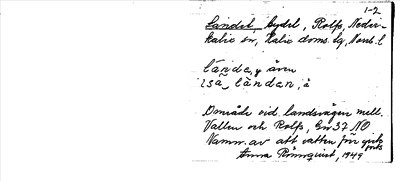 1-2
Landet, bydel, Rolfs, Neder-
kalix sn, Kalix doms. lg, Norrb. l
lända, y även
isa län dan, å
Område vid landsvägen mell.
Vallen och Rolfs, Gw 37 NO
Namn. av att vatten för
Anna Rönnquist, 1949